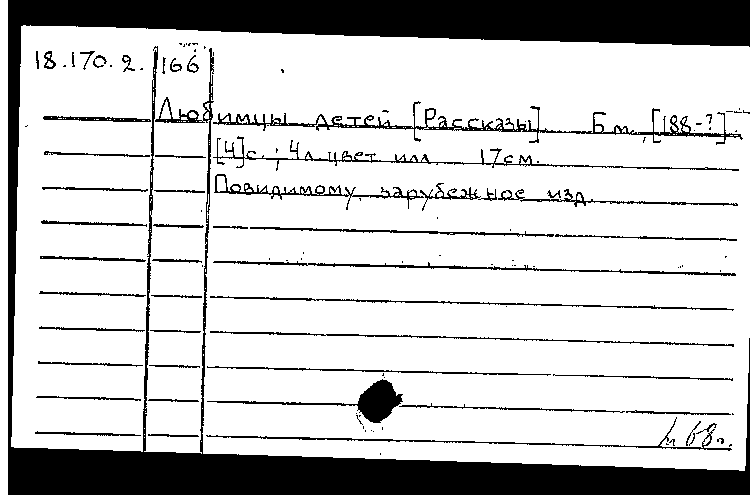 18.170.2. 166
Любимцы детей [Рассказы] Б.м., [188-?]
[4]с.; 4л цвет илл. 17см.
Повидимому, зарубежное изд.
68г.